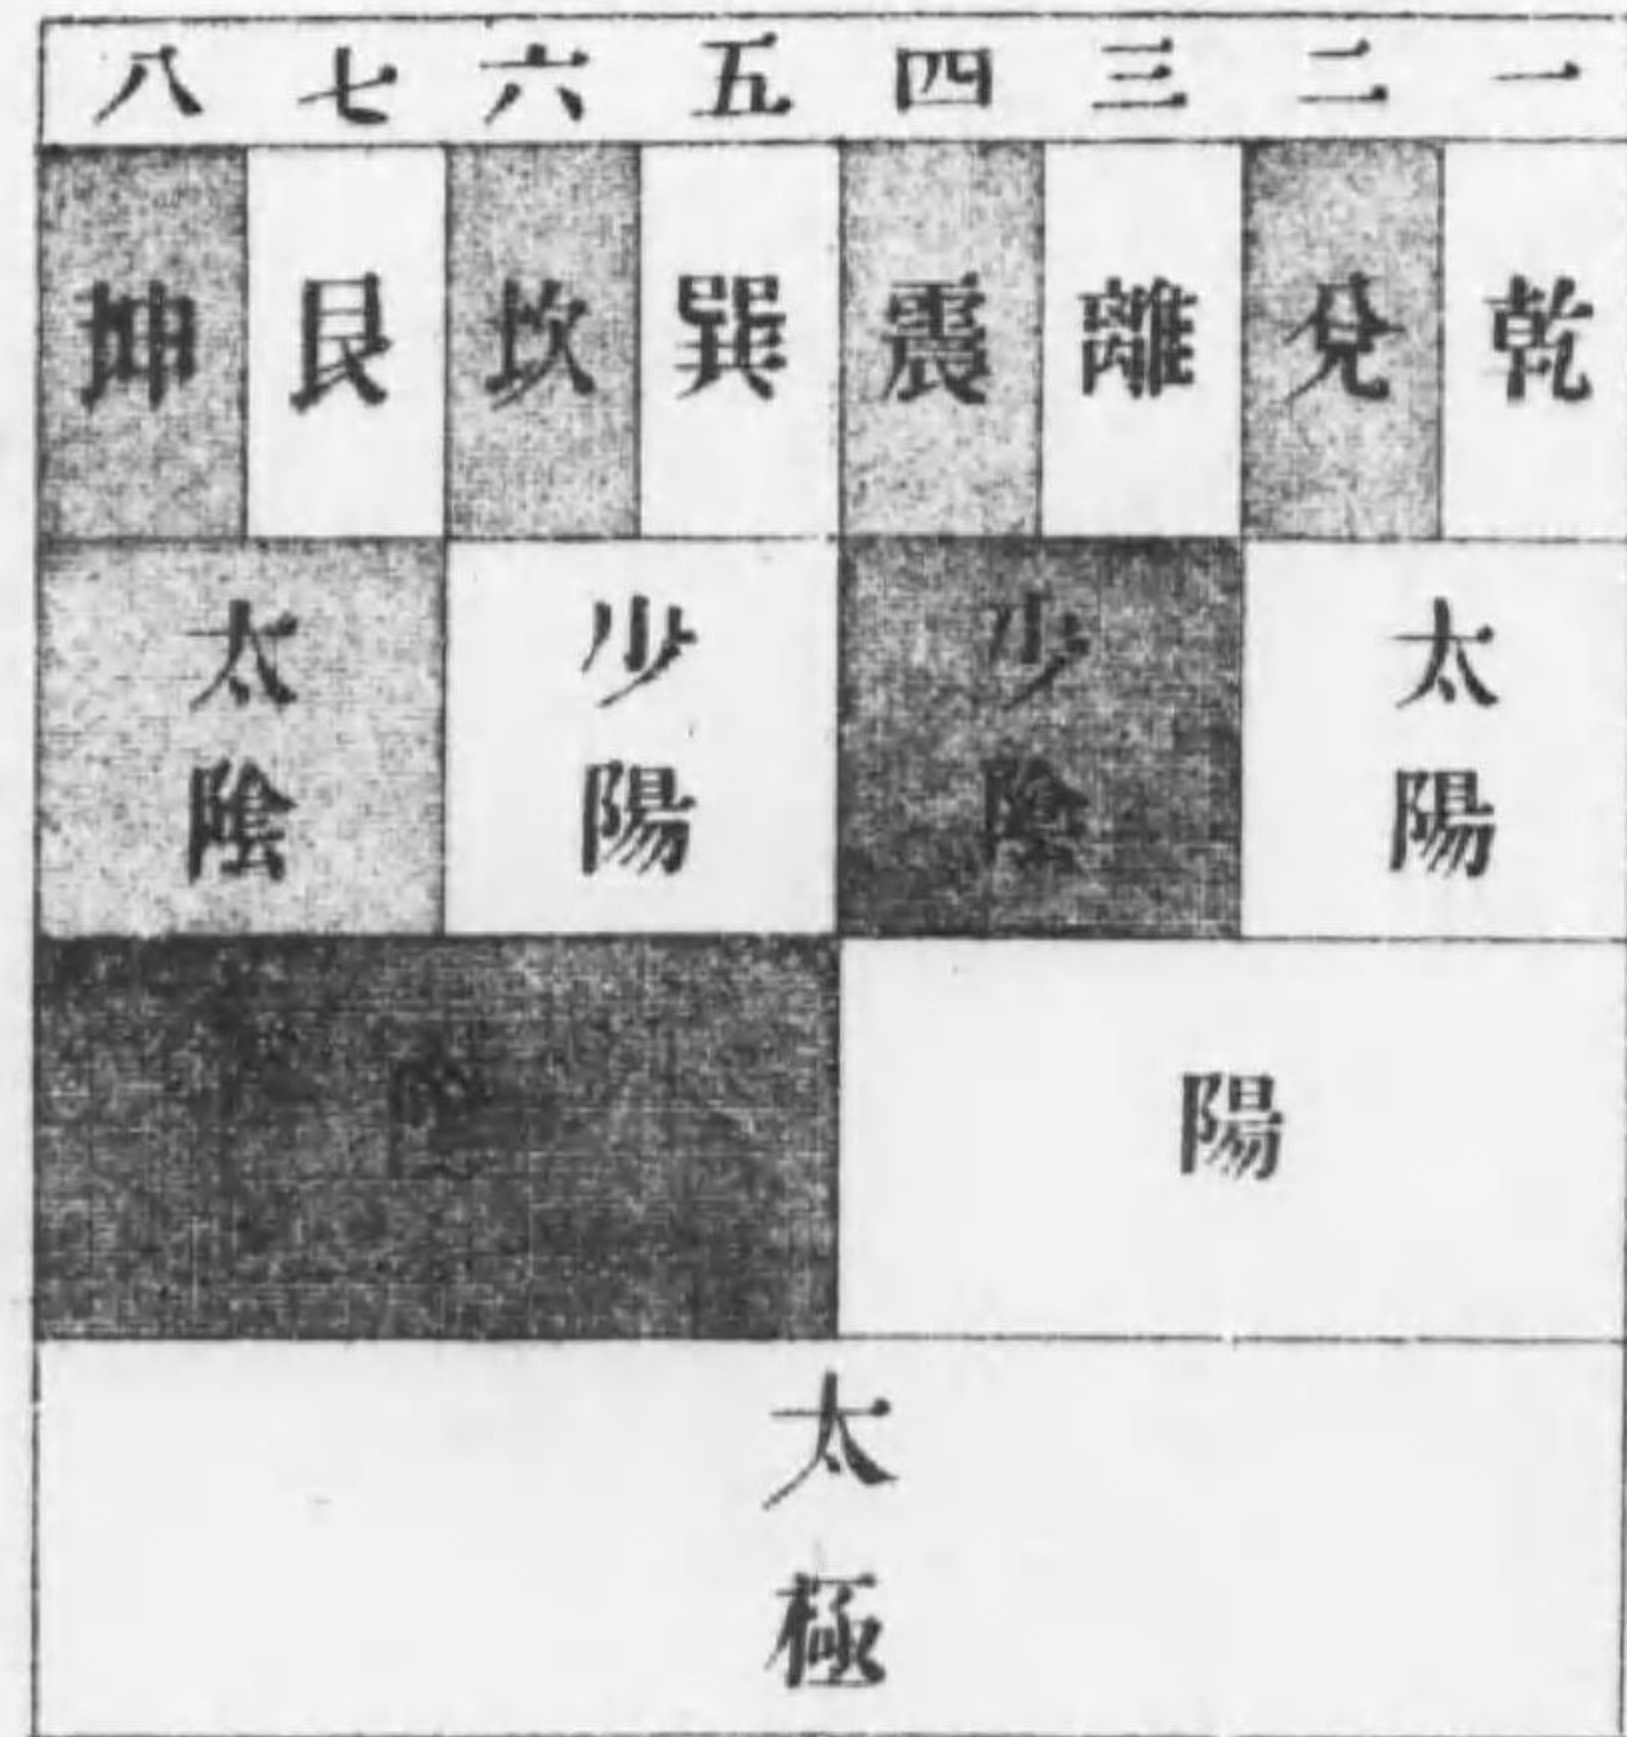 一 二 三 四 五 六 七 八
乾 兌 離 震 巽 坎 艮 坤
太陽 少陰 少陽 太陰
陽
太極